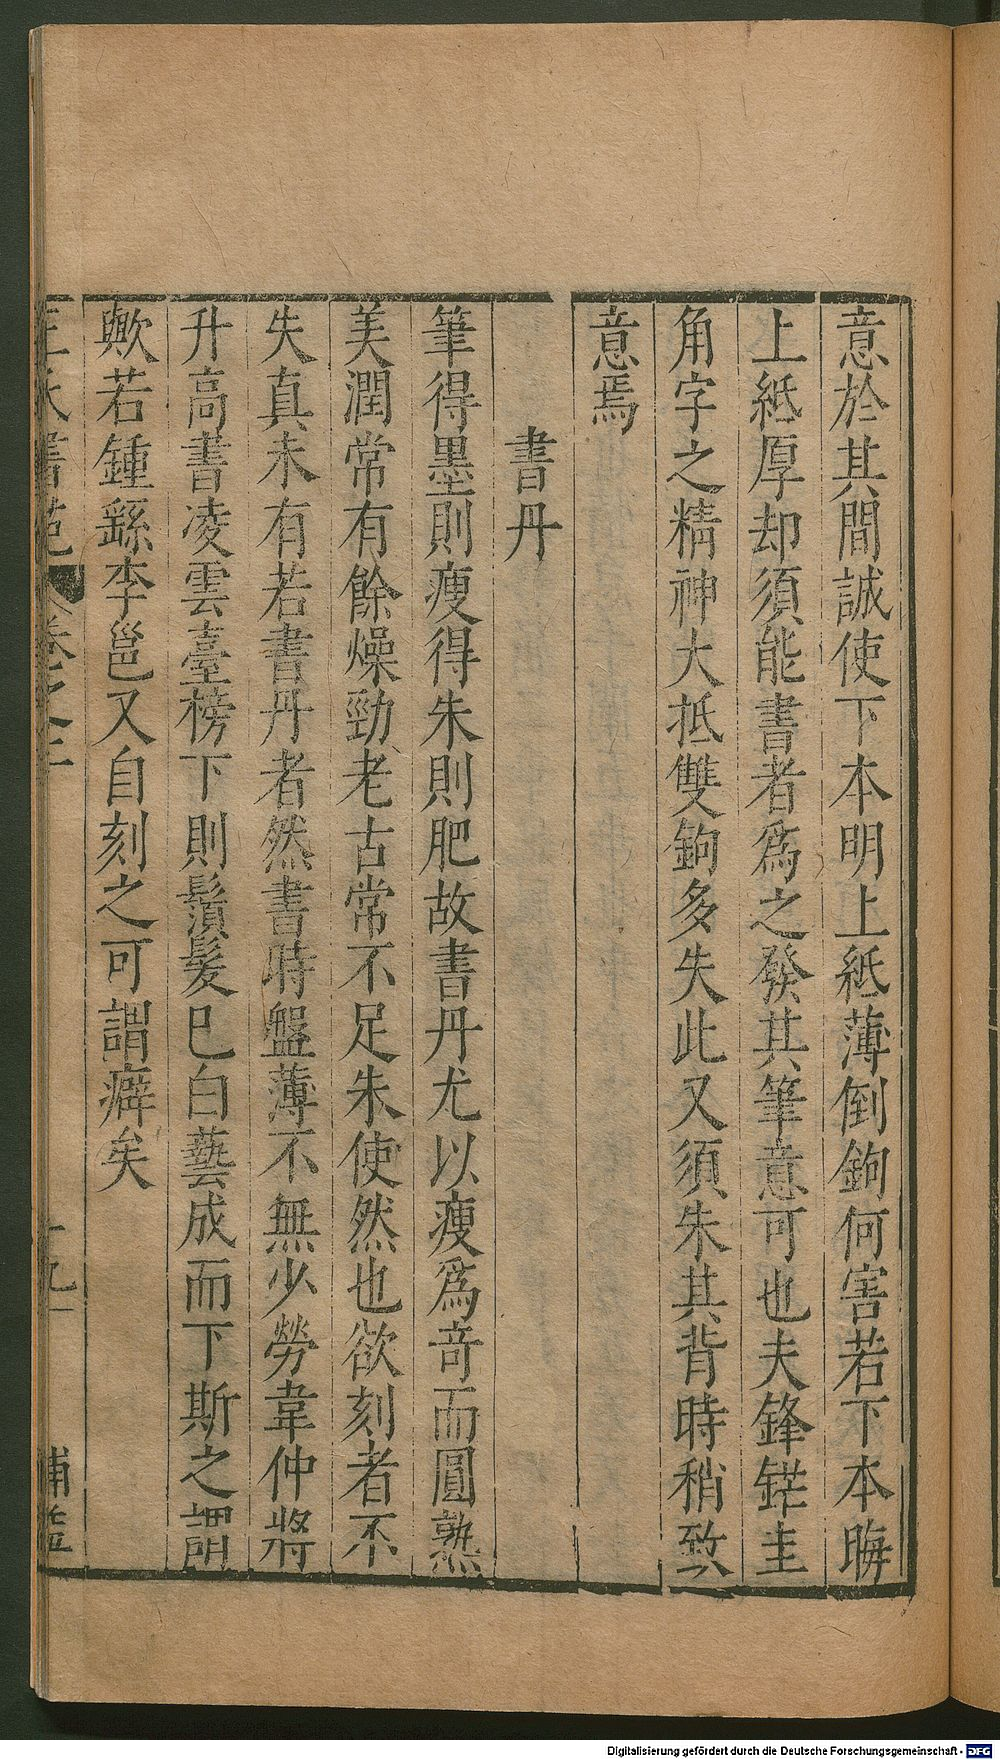 意於其間誠使下本明上紙薄倒鉤何害若下本晦
上紙厚却須能書者爲之發其筆意可也夫鋒鋩圭
角字之精神大抵雙鉤多失此又須朱其背時稍致
意焉
書丹
筆得墨則瘦得朱則肥故書丹尤以瘦爲奇而圓熟
美潤常有餘燥勁老古常不足朱使然也欲刻者不
失真未有若書丹者然書時盤薄不無少勞韋仲將
升高書凌雲臺榜下則鬚髮已白藝成而下斯之謂
歟若鍾繇李邕又自刻之可謂癖矣
書苑 卷之二
十九
Digitalisierung gefördert durch die Deutsche Forschungsgemeinschaft - DFG